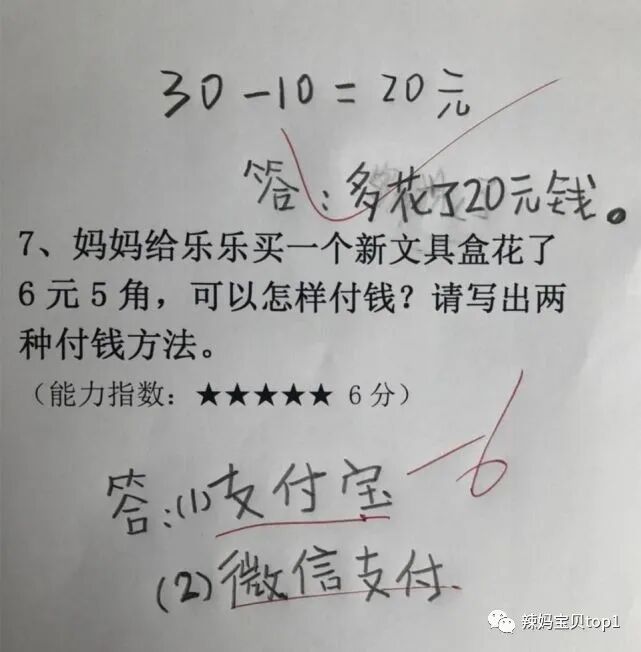 30-10=20元
答:多花了20元钱。
7、妈妈给乐乐买一个新文具盒花了
6元5角，可以怎样付钱？请写出两
种付钱方法。
（能力指数：★★★★★ 6分）
-6
答:(1)支付宝
(2)微信支付.
辣妈宝贝top1